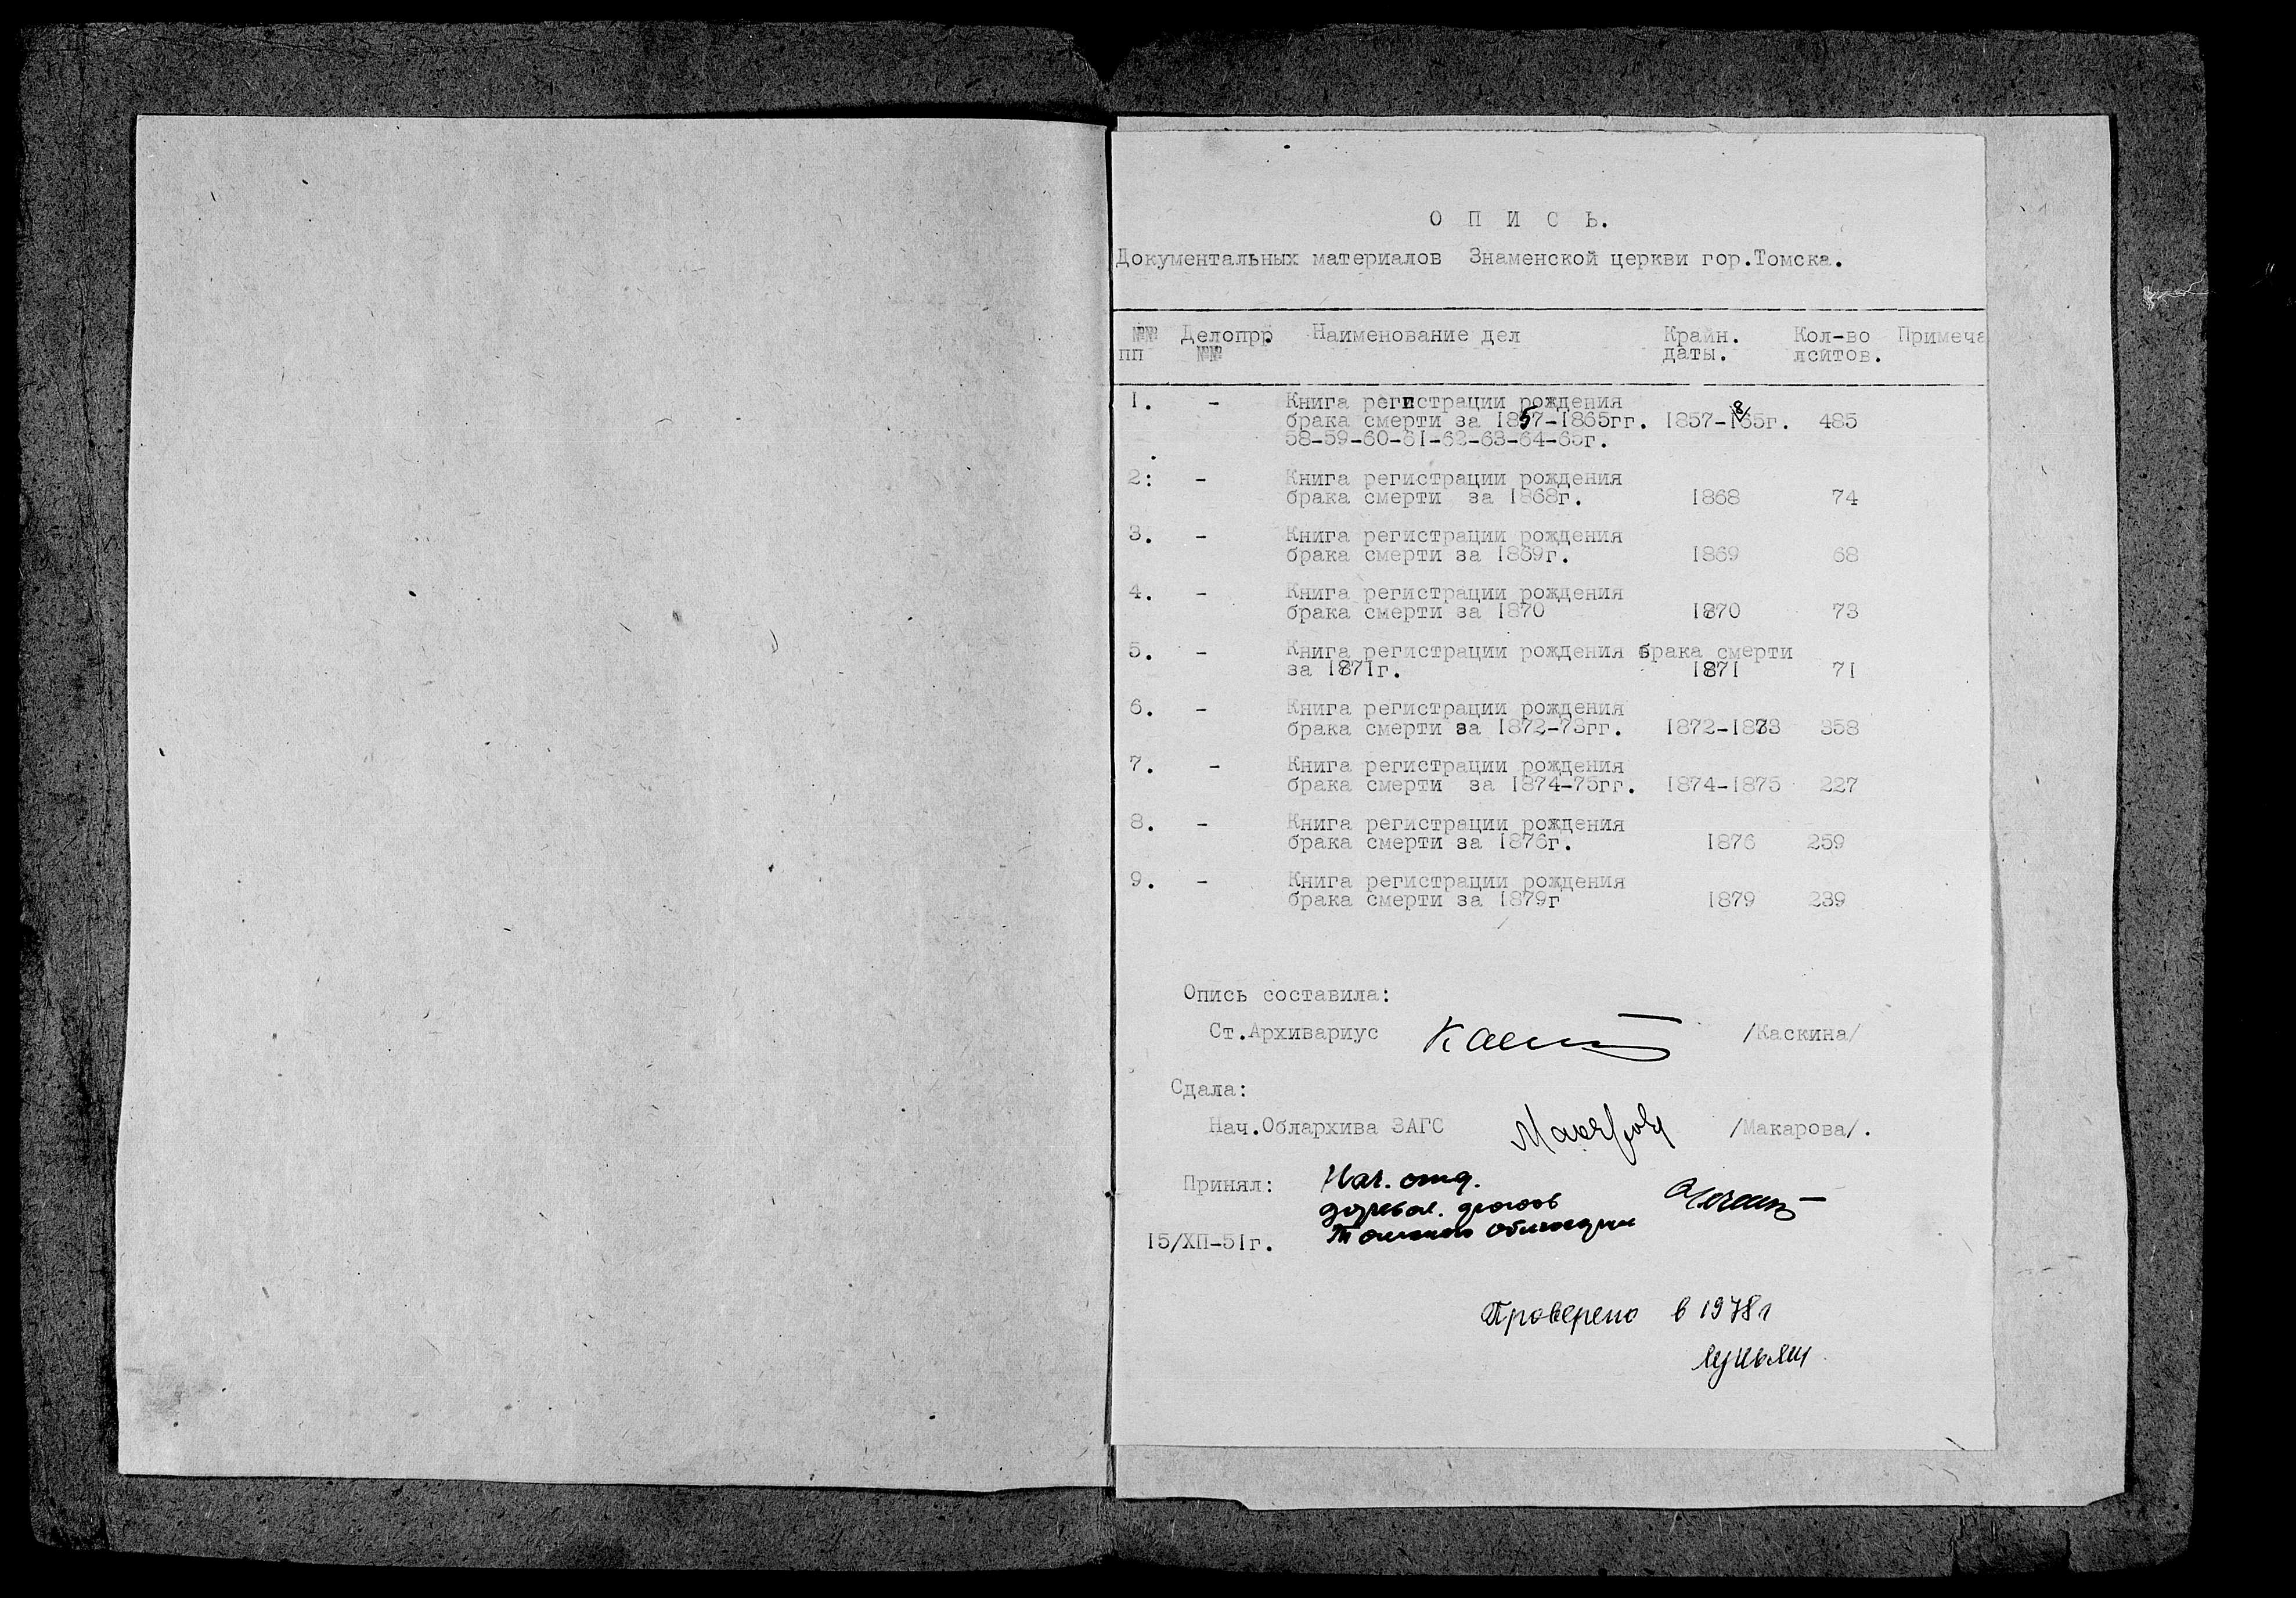 О П И С Ь.
Документальных материалов Знаменской церкви гор.Томска.
№№ Делопрр Наименование дел Крайн. Кол-во Примеча
пп №№ даты. лситов.
1. - Книга регистрации рождения
брака смерти за 1857-1865гг. 1857-1865г. 485
58-59-60-61-62-63-64-65г.
2: - Книга регистрации рождения
брака смерти за 1868г. 1868 74
3. - Книга регистрации рождения
брака смерти за 1869г. 1869 68
4. - Книга регистрации рождения
брака смерти за 1870 1870 73
5. - Книга регистрации рождения брака смерти
за 1871г. 1871 71
6. - Книга регистрации рождения
брака смерти за 1872-73гг. 1872-1873 358
7. - Книга регистрации рождения
брака смерти за 1874-75гг. 1874-1875 227
8. - Книга регистрации рождения
брака смерти за 1876г. 1876 259
9. - Книга регистрации рождения
брака смерти за 1879г 1879 239
Опись составила:
Ст.Архивариус /Каскина/
Сдала:
Нач.Облархива ЗАГС /Макарова/.
Принял: Нач. отд.
15/ХП-51г.
Проверено в 1978г